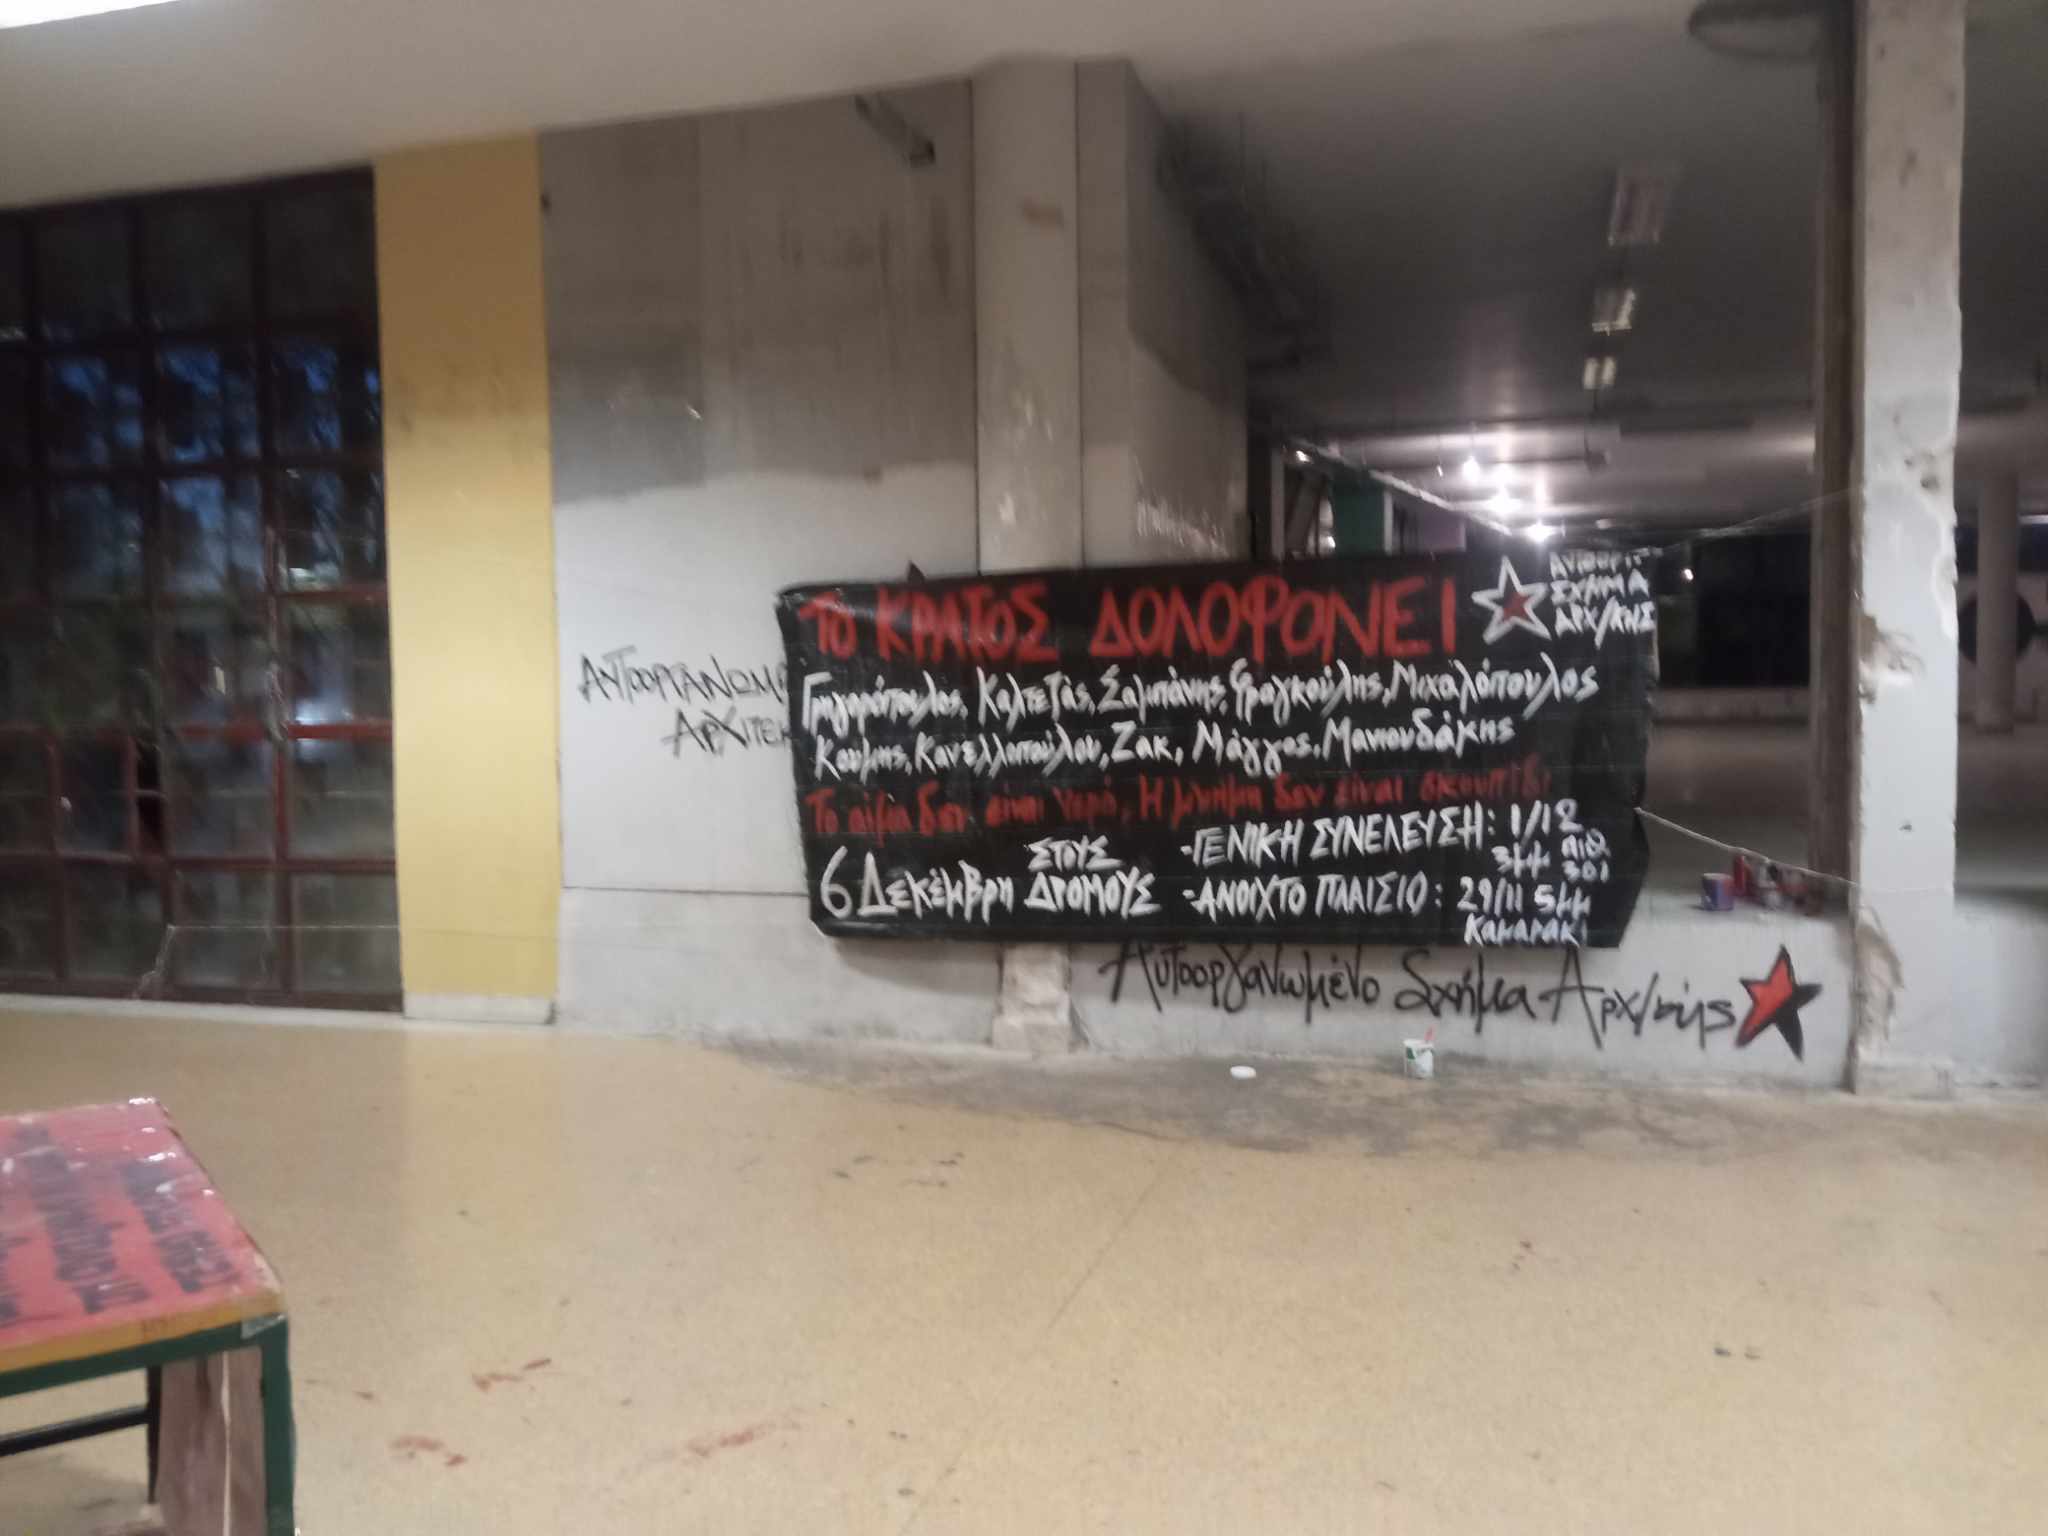 ΤΟ ΚΡΑΤΟΣ ΔΟΛΟΦΟΝΕΙ
ΣΧΗΜΑ
ΑΡΧ/ΚΗΣ
Γρηγορόπουλος, Καλτεζάς, Σαμπάνης, Φραγκούλης, Μιχαλόπουλος
Κουμής, Κανελλοπούλου, Ζακ, Μάγγος, Μανιουδάκης
Το αίμα δεν είναι νερό, Η μνήμη δεν είναι σκουπίδι
6 Δεκέμβρη ΣΤΟΥΣ ΔΡΟΜΟΥΣ
-ΓΕΝΙΚΗ ΣΥΝΕΛΕΥΣΗ: 1/12
3μμ
301
-ΑΝΟΙΧΤΟ ΠΛΑΙΣΙΟ: 29/11 5μμ
Καμαράκι
ΑΥΤΟΟΡΓΑΝΩΜ
ΑΡΧΙΤΕΚ
Αυτοοργανωμένο Σχήμα Αρχ/κής